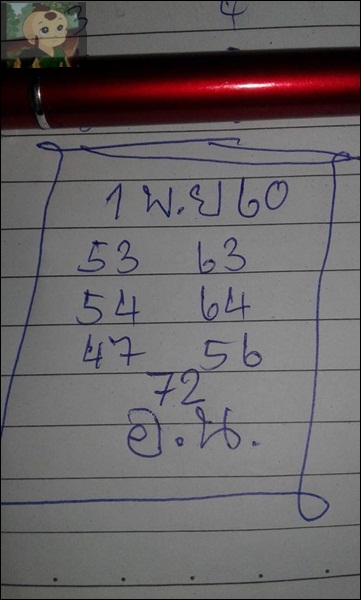 3 4
1 พ.ย 60
53 63
54 64
47 56
72
อ.น.